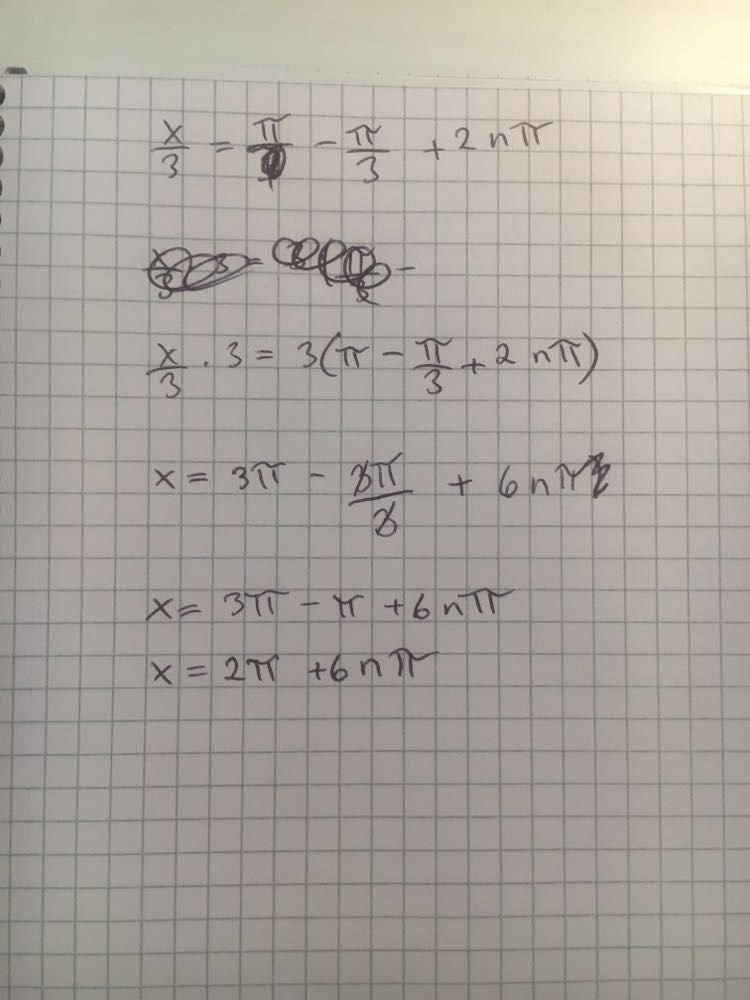 x/3 = π/1 - π/3 + 2nπ
x/3 · 3 = 3(π - π/3 + 2nπ)
x = 3π - 3π/3 + 6nπ
x = 3π - π + 6nπ
x = 2π + 6nπ